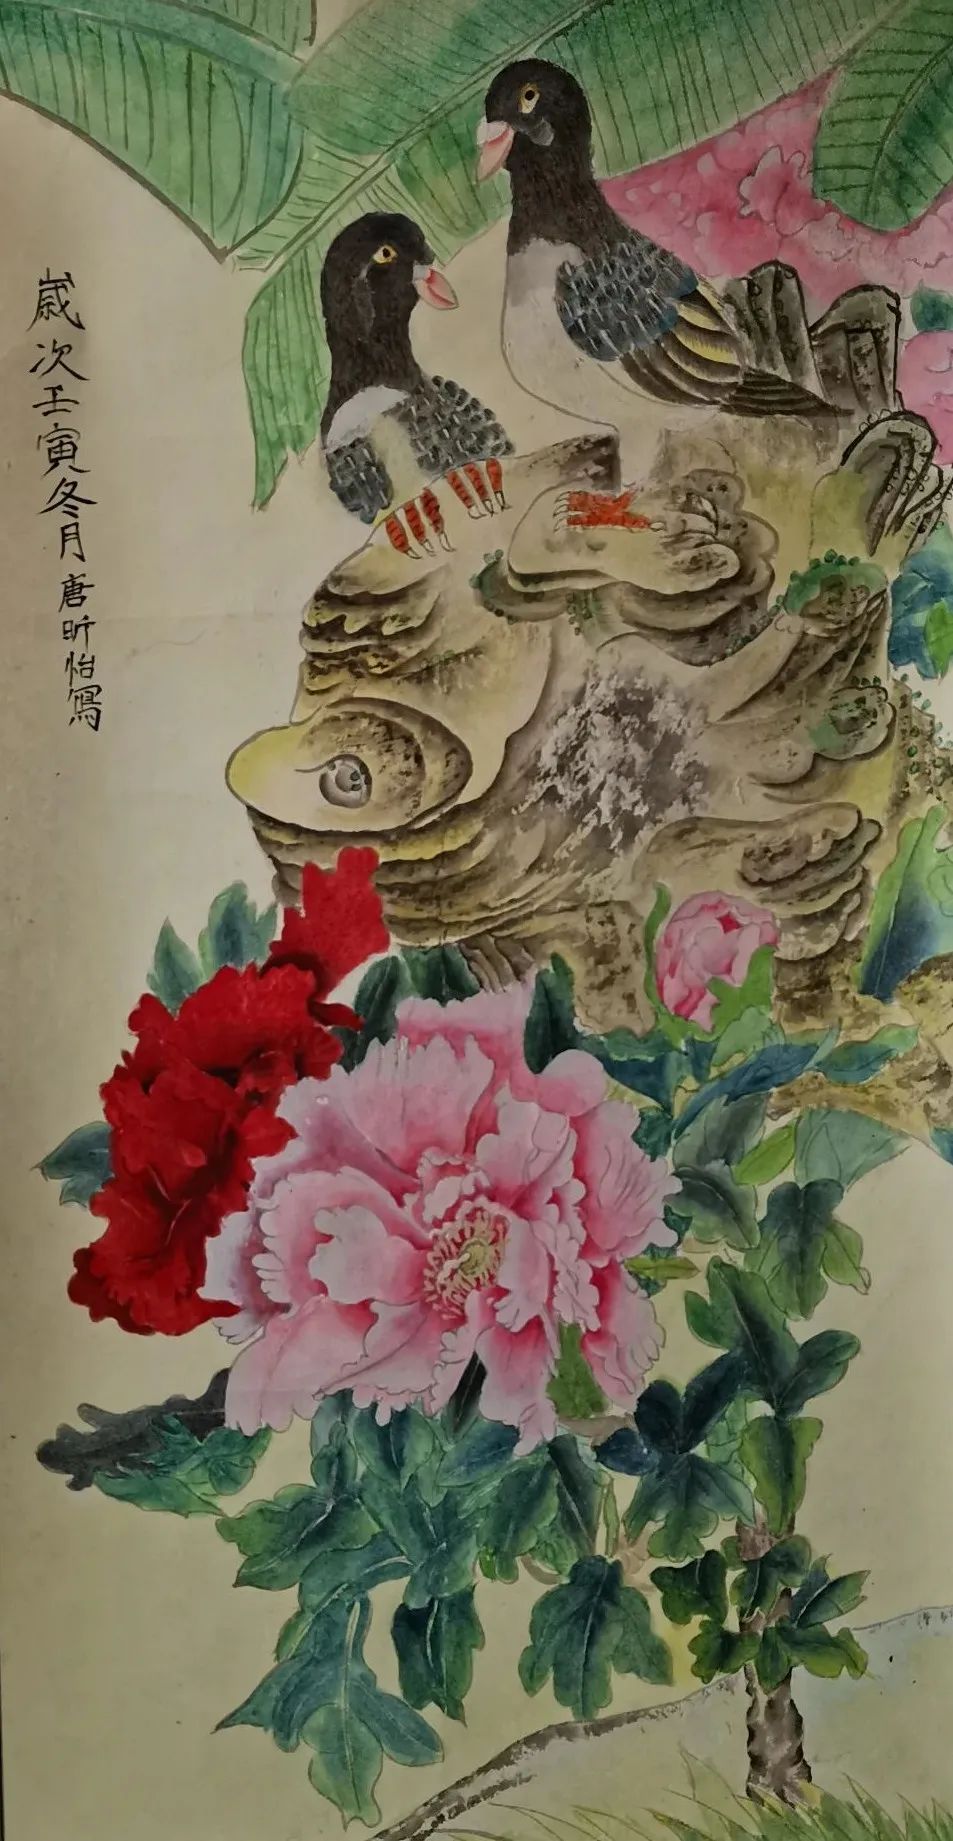 歳次壬寅冬月唐昕怡寫